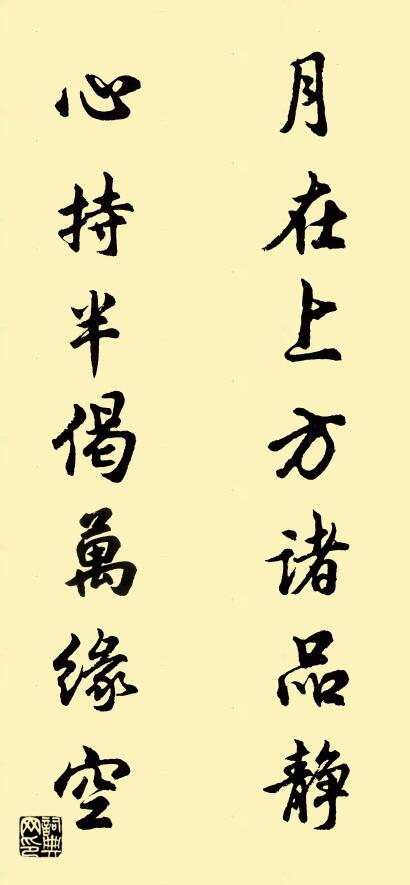 月在上方诸品静
心持半偈萬缘空
詞典网印